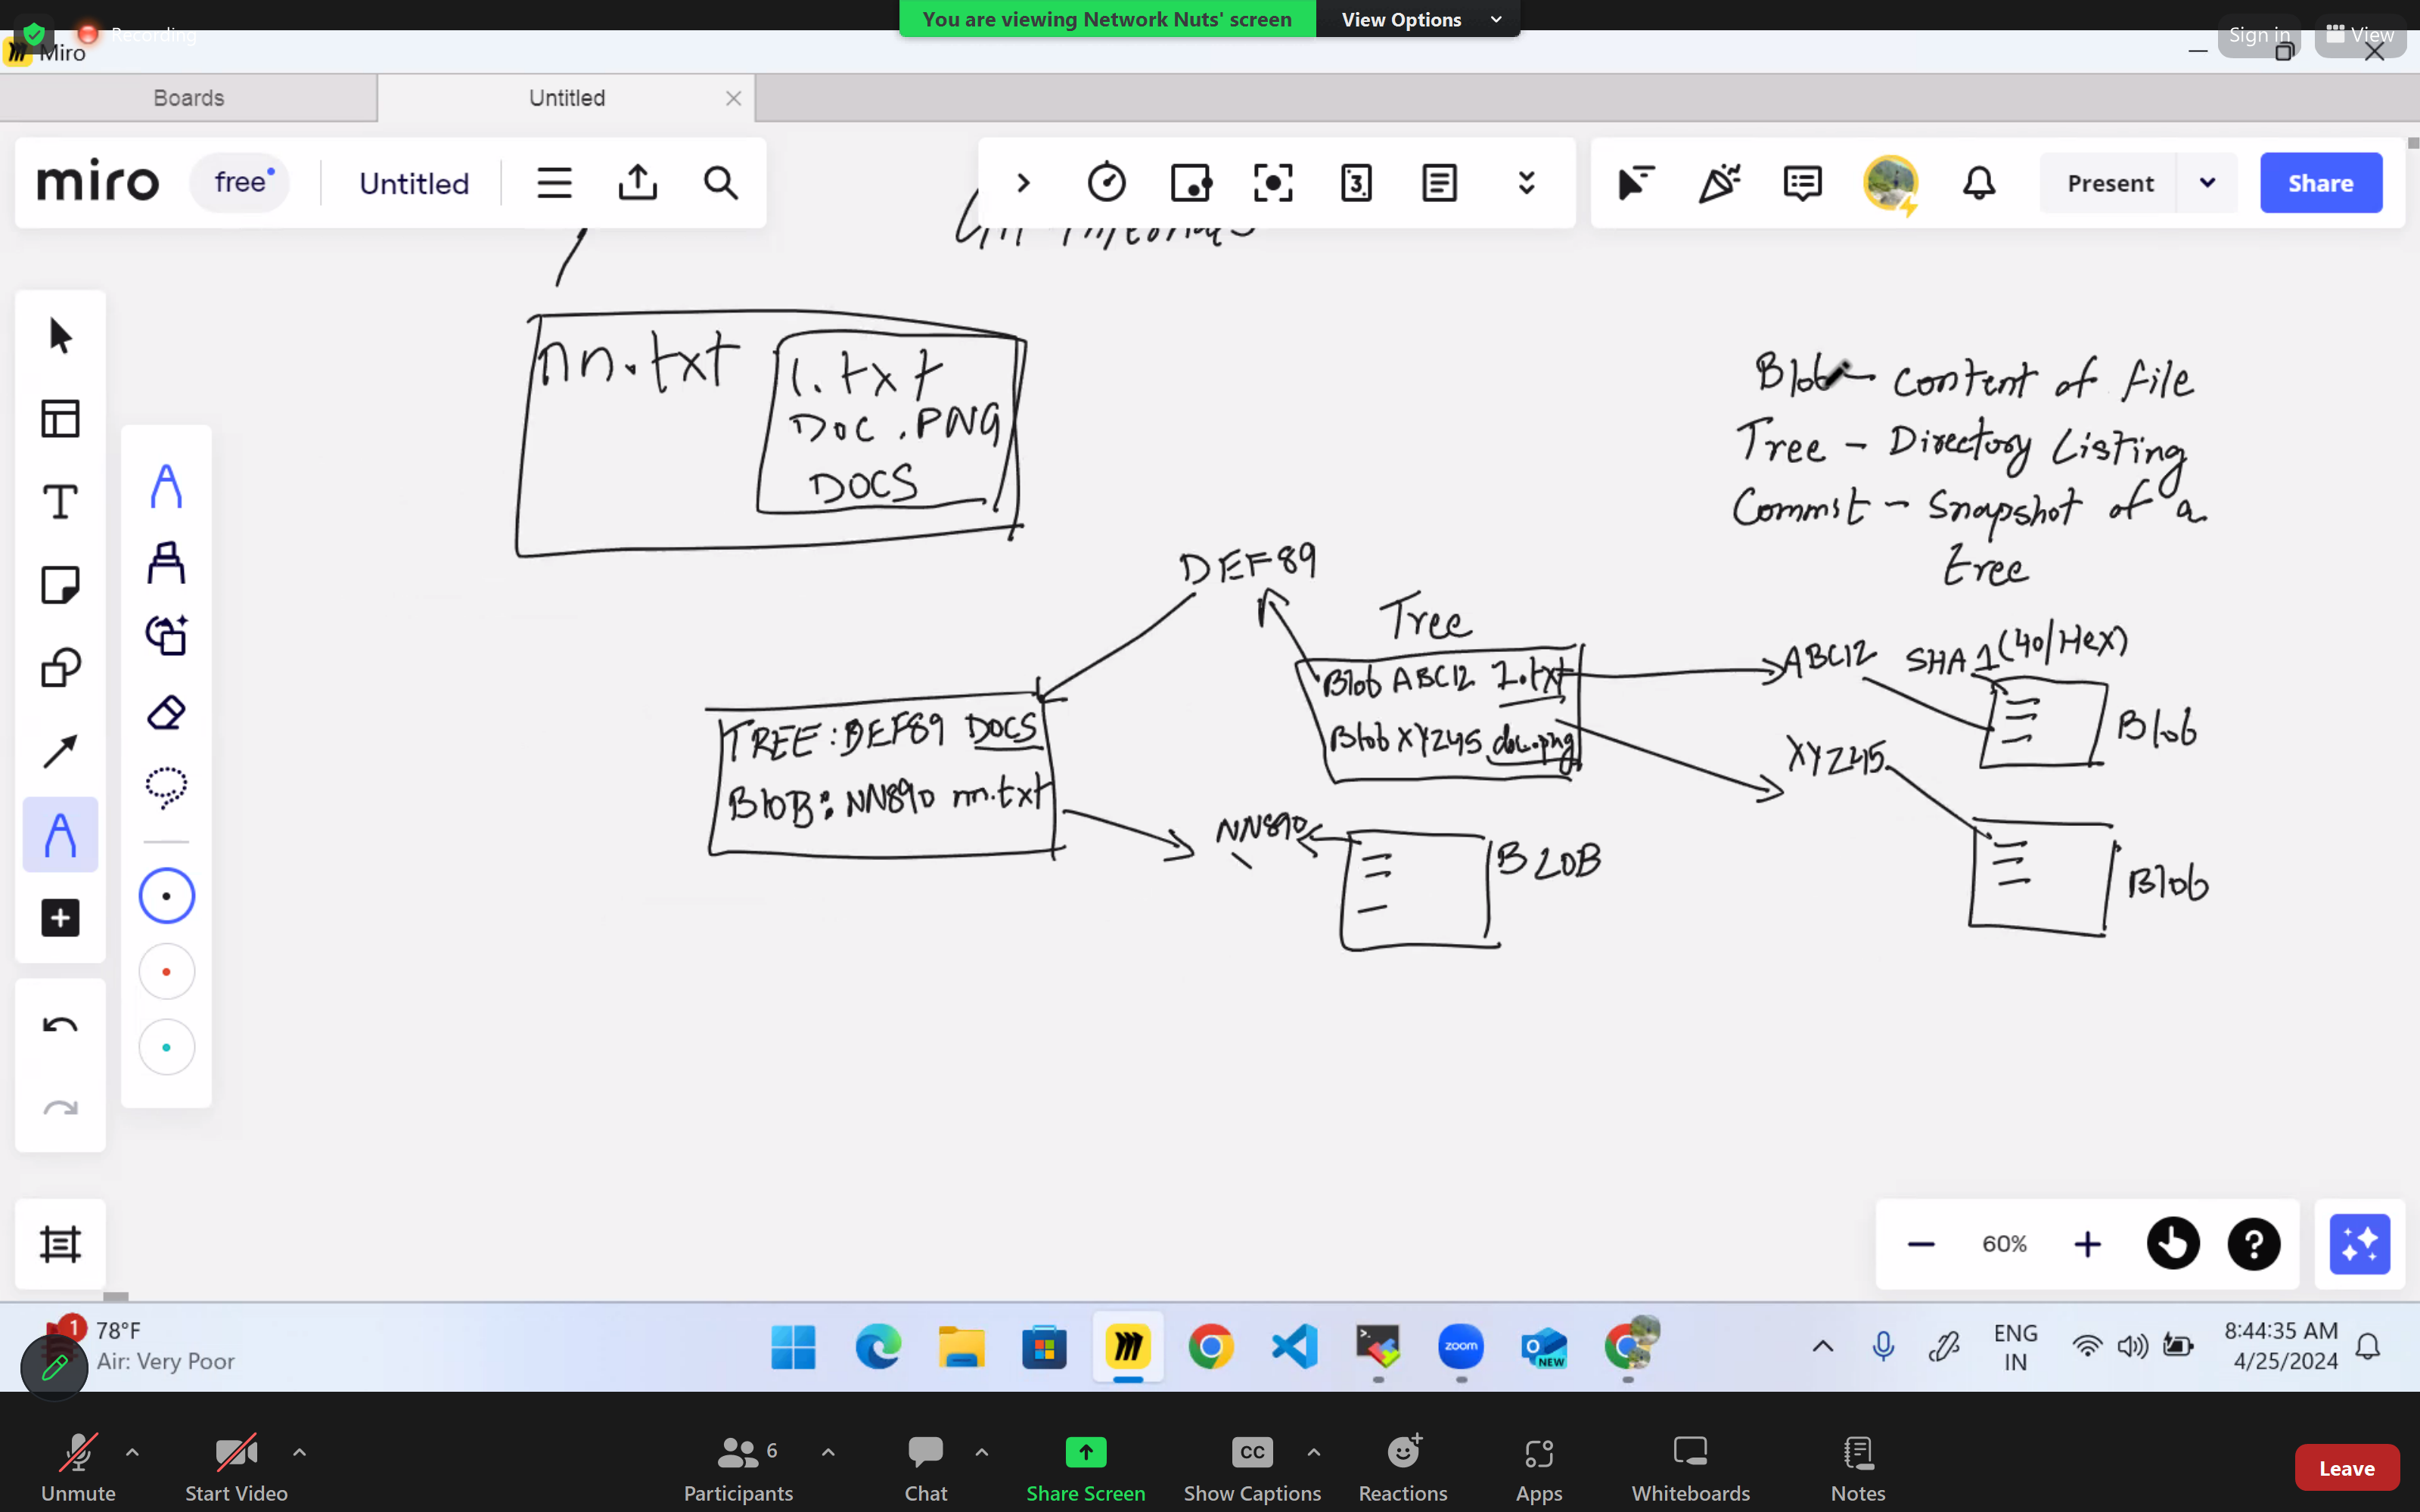 You are viewing Network Nuts' screen
View Options
Recording
Sign in
View
Miro
Boards
Untitled
miro
free
Untitled
Present
Share
nn.txt
1.txt
DOC .PNG
DOCS
Blob - Content of file
Tree - Directory Listing
Commit - Snapshot of a
tree
DEF89
Tree
Blob ABC12 1.txt
Blob XYZ45 doc.png
ABC12
SHA 1 (40/Hex)
Blob
XYZ45
Blob
TREE : DEF89 DOCS
BlOB : NN890 nn.txt
NN890
BLOB
60%
1
78°F
Air: Very Poor
NEW
zoom
ENG
IN
8:44:35 AM
4/25/2024
Unmute
Start Video
6
Participants
Chat
Share Screen
CC
Show Captions
Reactions
Apps
Whiteboards
Notes
Leave